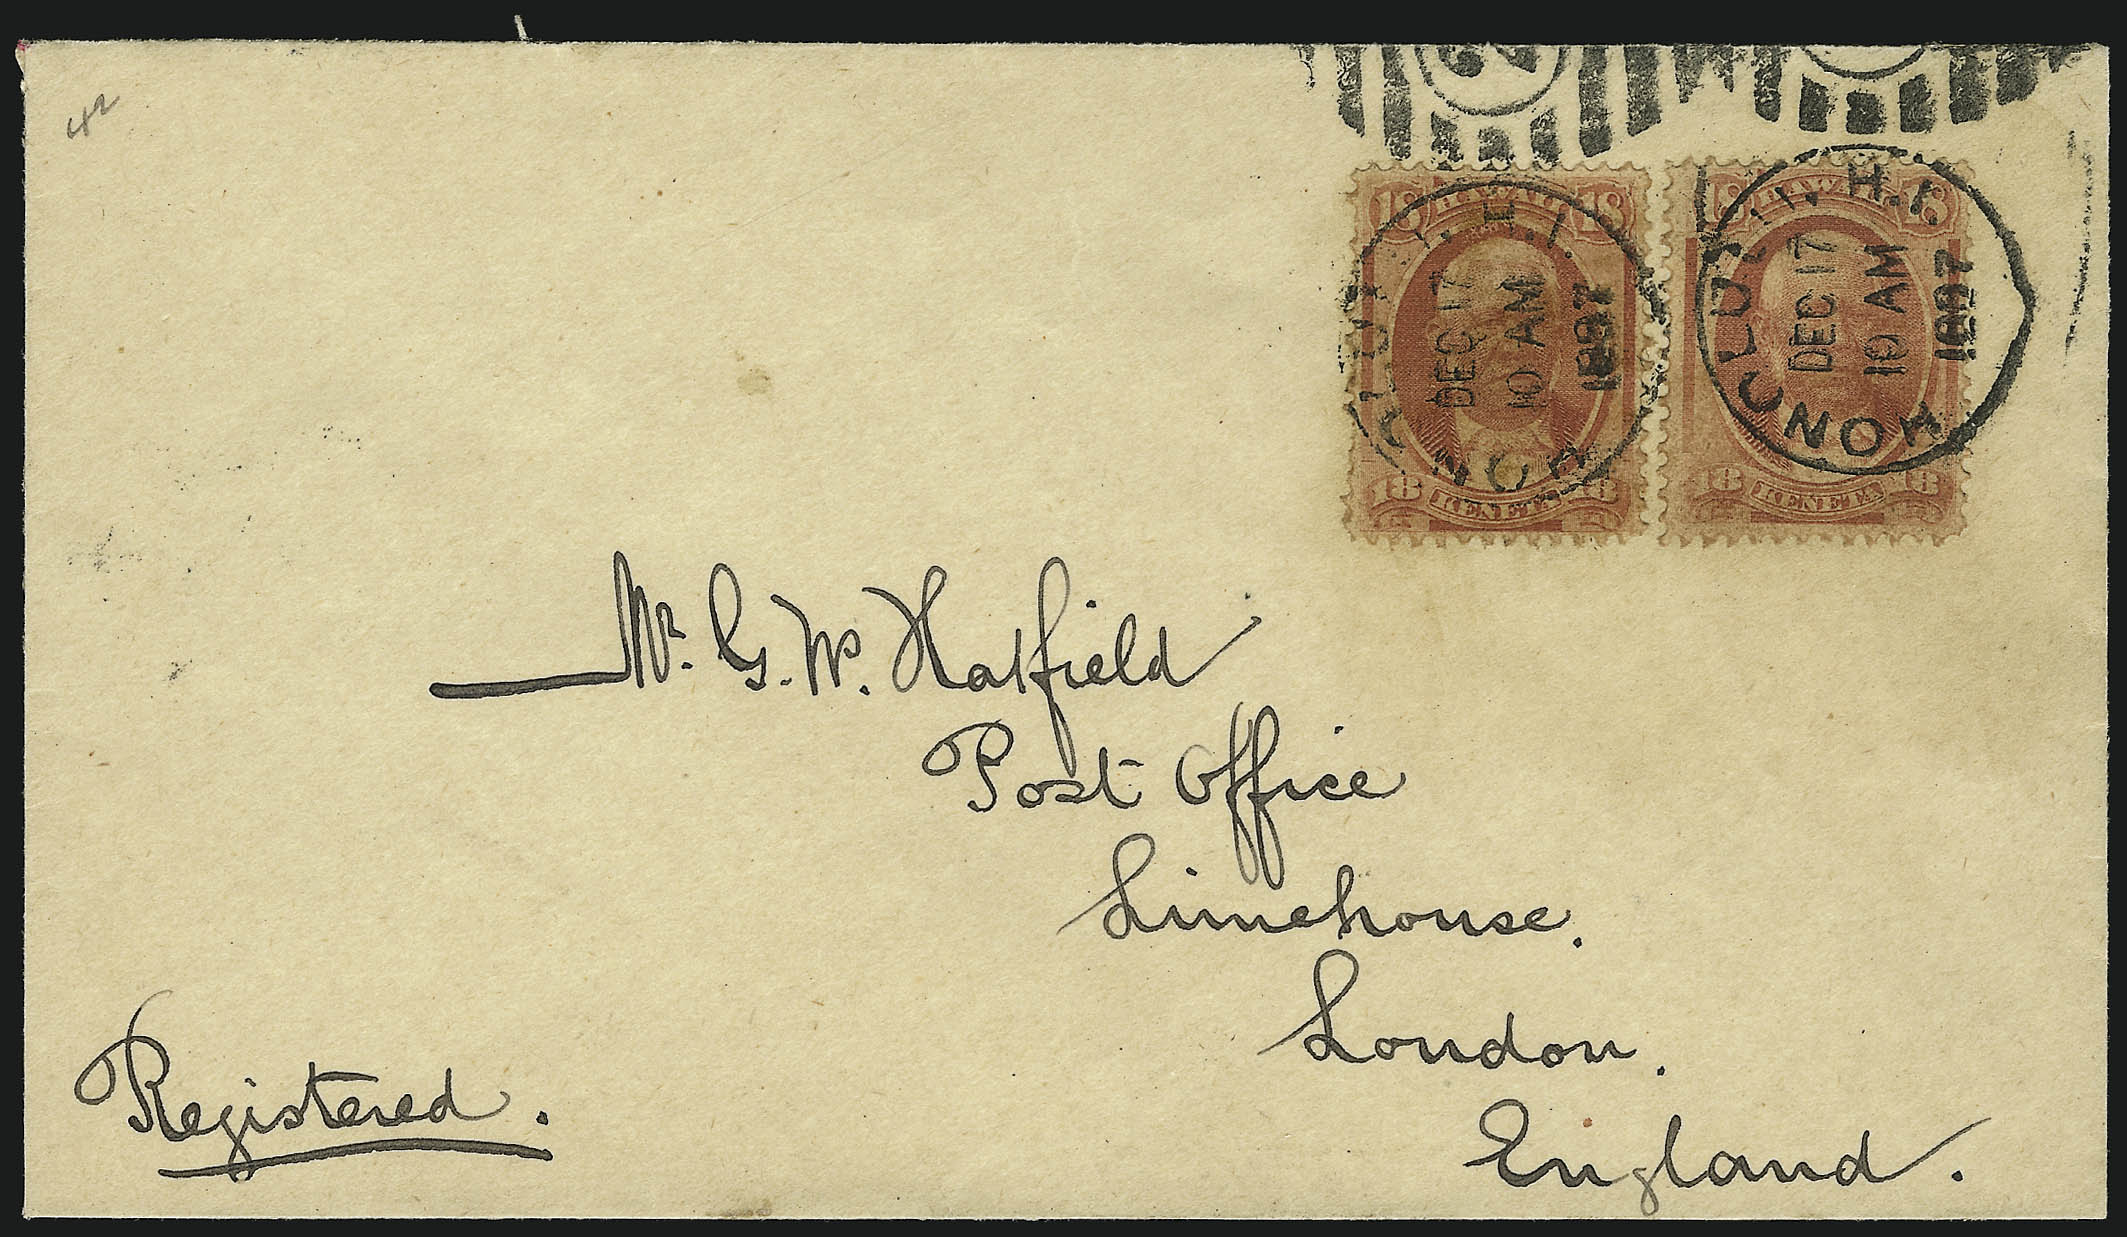 42
18 HAWAII 18
HONOLULU H.I.
DEC 17
10 AM
1897
18 KENETA 18
18 HAWAII 18
HONOLULU H.I.
DEC 17
10 AM
1897
18 KENETA 18
Mr. G. W. Hatfield
Post Office
Limehouse.
London.
England.
Registered.